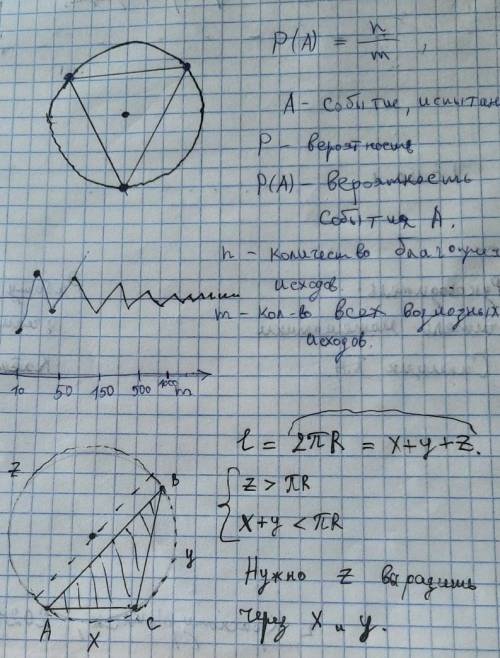 P(A) = n/m,
A - событие, испытан
P - вероятность
P(A) - вероятность
события A.
n - количество благоприят
исходов.
m - кол-во всех возможных
исходов.
10 50 150 500 1000 m
l = 2πR = x+y+z.
z > πR
x+y < πR
Нужно z выразить
через x и y.
z
B
y
A
x
C